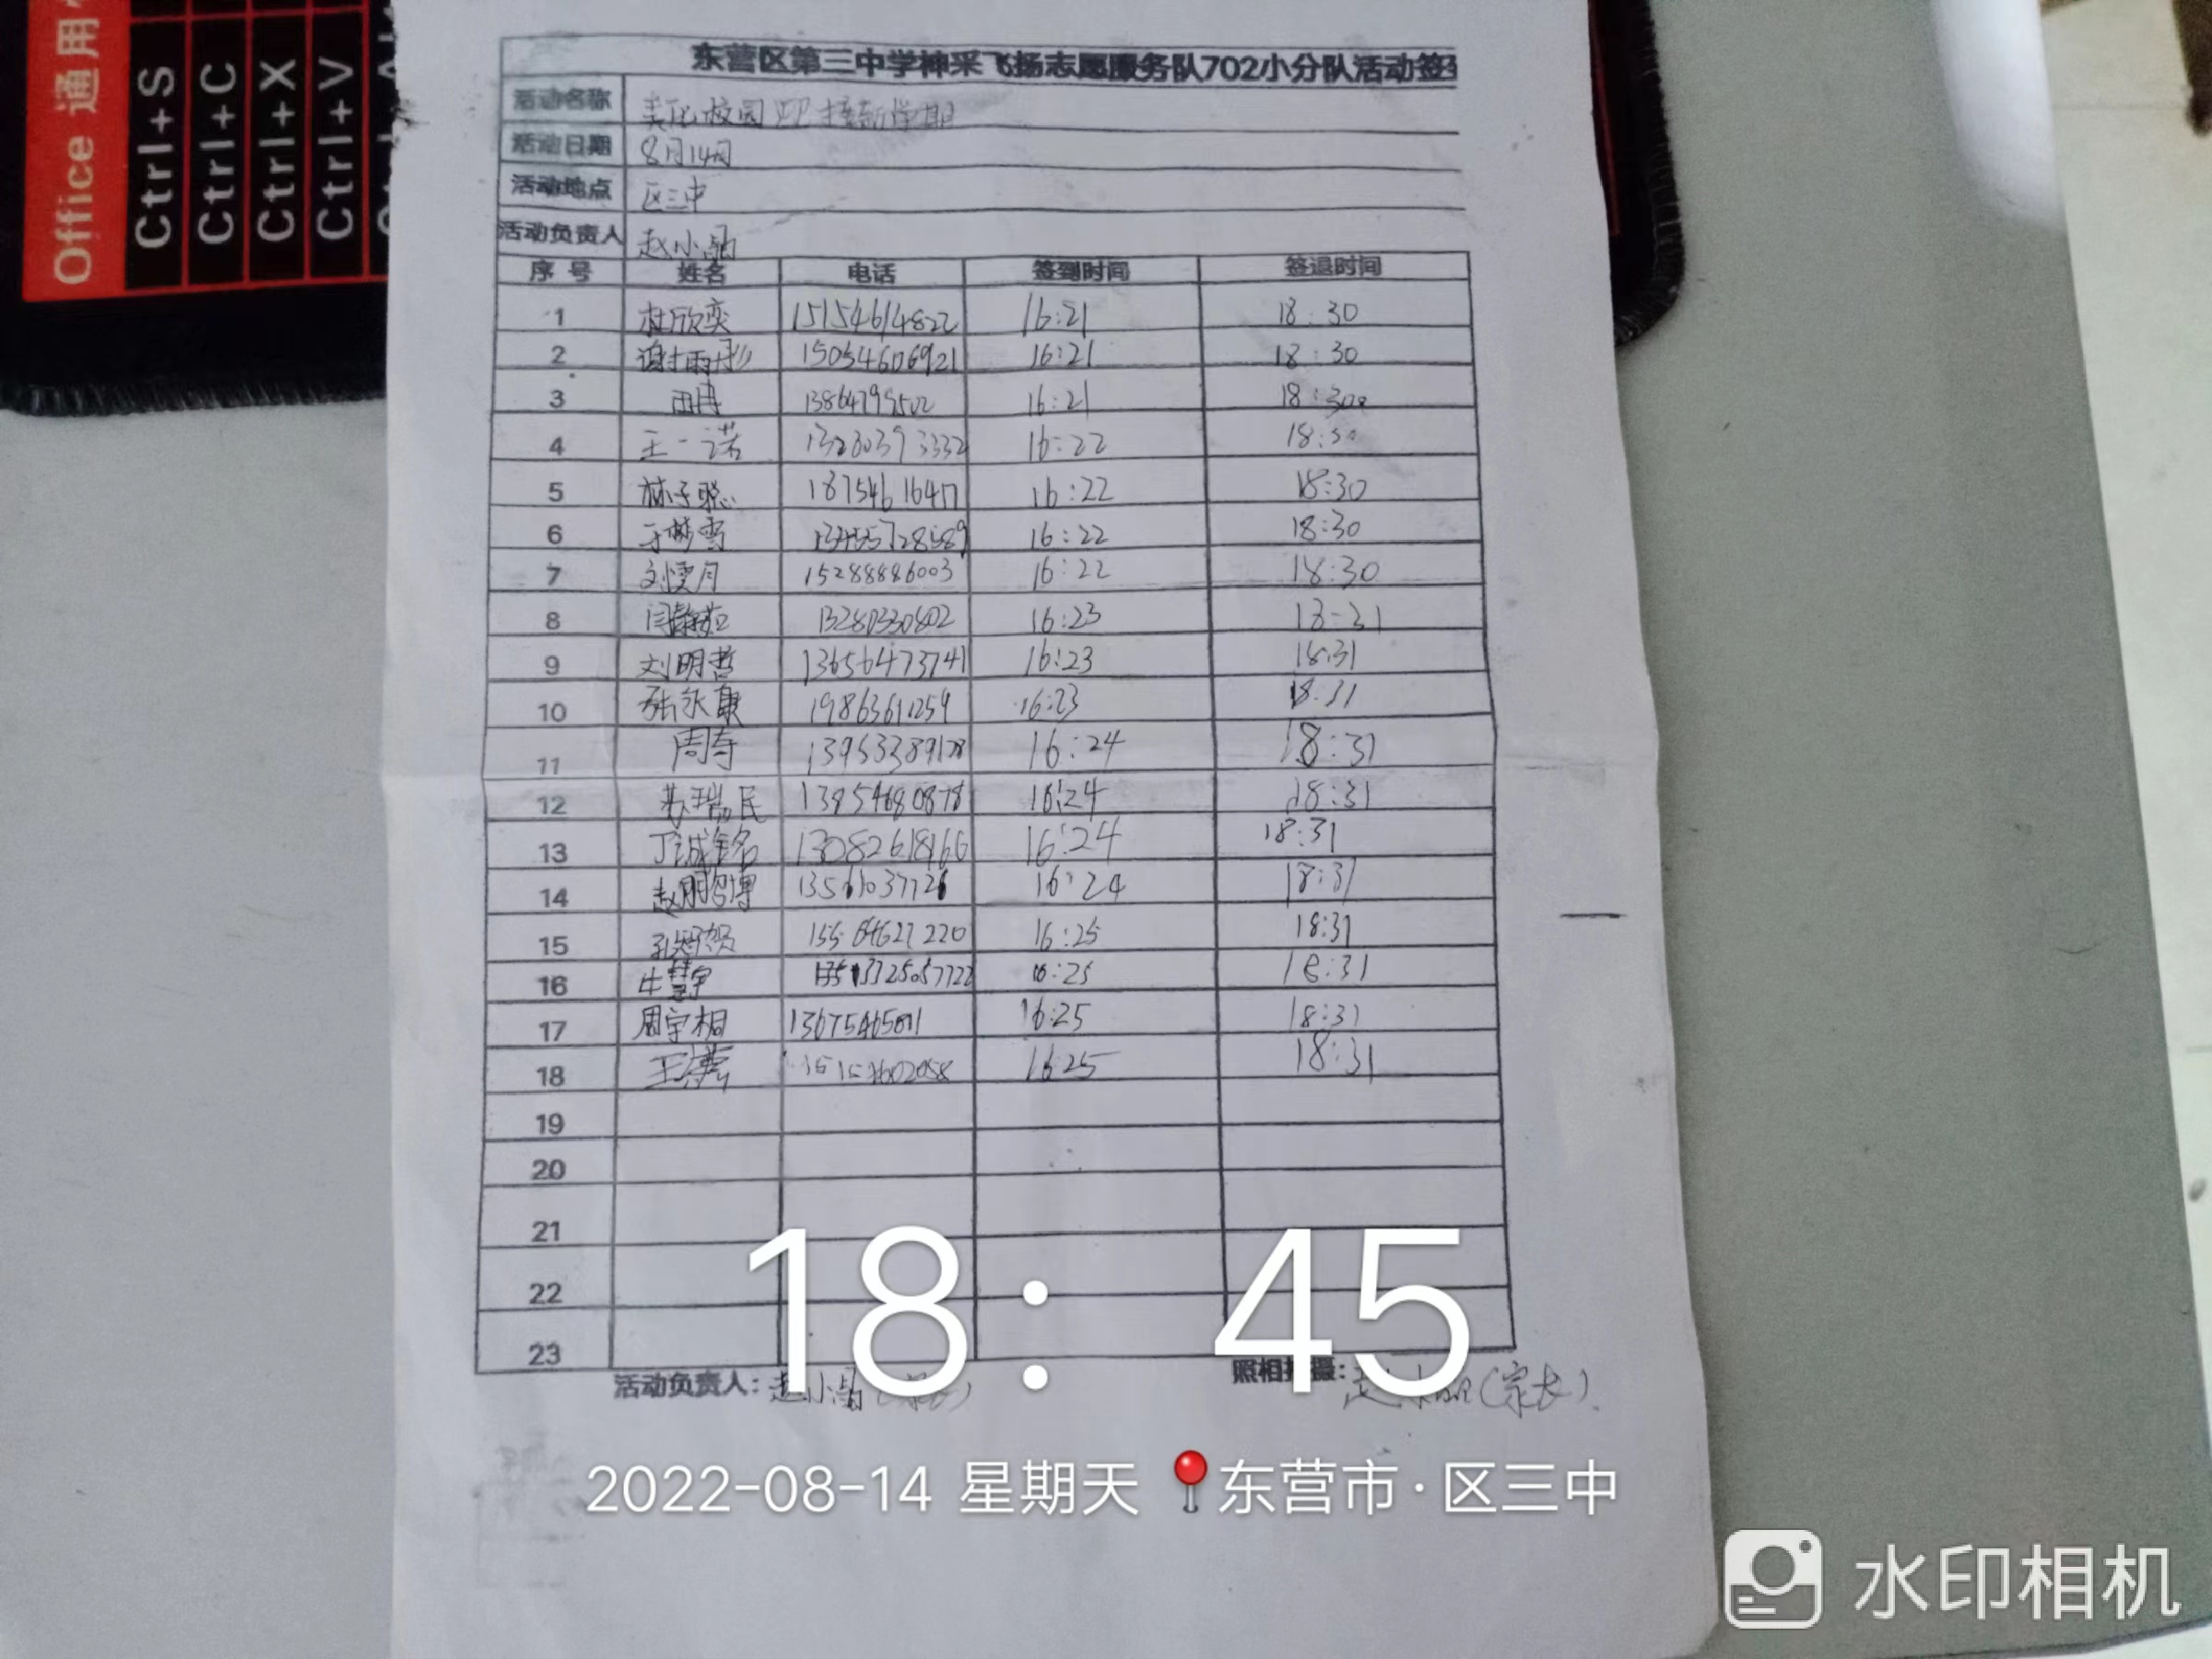 Office 通用
Ctrl+S
Ctrl+C
Ctrl+X
Ctrl+V
东营区第三中学神采飞扬志愿服务队702小分队活动签
活动名称 美化校园 迎接新学期
活动日期 8月14日
活动地点 区三中
活动负责人 赵小
序 号 姓名 电话 签到时间 签退时间
1 杜欣奕 15154614822 16:21 18:30
2 谢雨彤 15054606921 16:21 18:30
3 16:21 18:30
4 王一诺 13280393332 16:22 18:30
5 林子聪 16:22 18:30
6 于梦雪 16:22 18:30
7 刘雯月 15288886003 16:22 18:30
8 闫静茹 13280330802 16:23 18:31
9 刘明哲 13656473741 16:23 18:31
10 张永康 19863611259 16:23 18:31
11 周寺 16:24 18:31
12 苏瑞民 13954680878 16:24 18:31
13 丁诚铭 16:24 18:31
14 赵 博 16:24 18:31
15 16:25 18:31
16 牛慧宇 16:25 18:31
17 周宇桐 16:25 18:31
18 王 16:25 18:31
19
20
21
22
23
活动负责人: 赵小 照相 摄: (家长)
18: 45
2022-08-14 星期天 东营市·区三中
水印相机